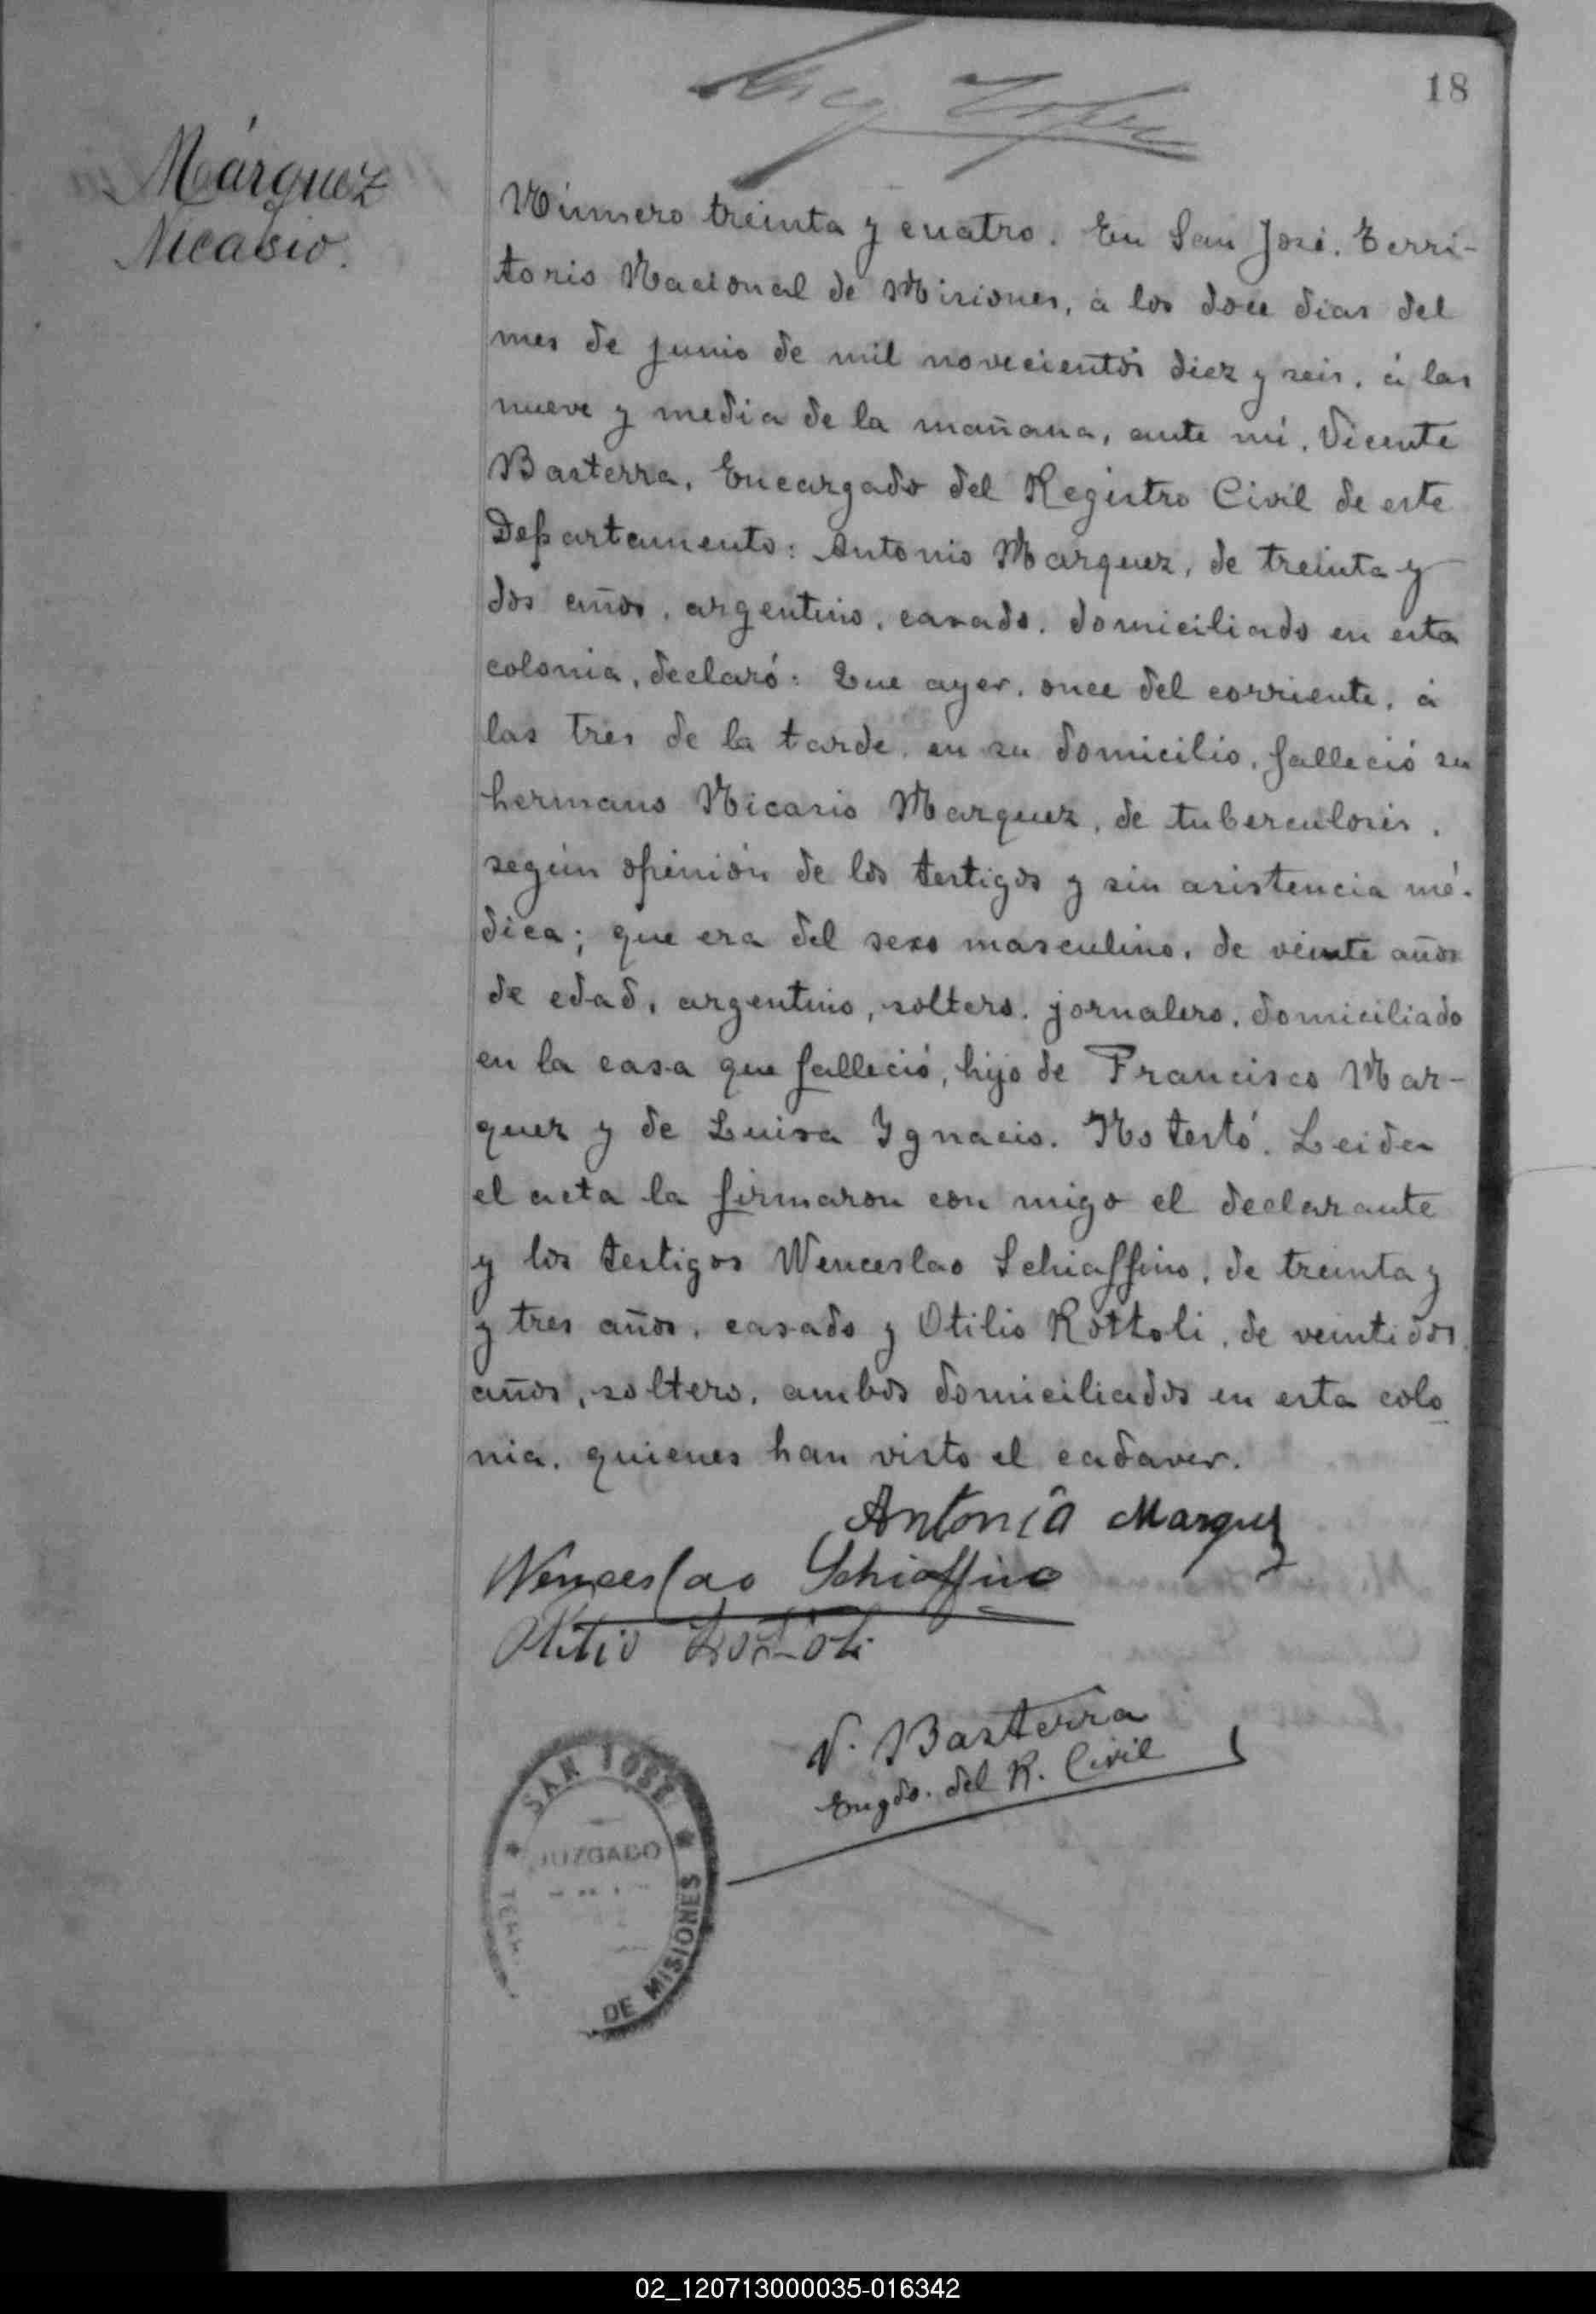 18
Márquez
Nicasio.
Número treinta y cuatro. En San José. Terri-
torio Nacional de Misiones, á los doce dias del
mes de junio de mil novecientos diez y seis, á las
nueve y media de la mañana, ante mí, Vicente
Basterra, Encargado del Registro Civil de este
Departamento: Antonio Marquez, de treinta y
dos años, argentino, casado, domiciliado en esta
colonia, declaró: Que ayer, once del corriente, á
las tres de la tarde, en su domicilio, falleció su
hermano Nicasio Marquez, de tuberculosis,
según opinión de los testigos y sin asistencia mé-
dica; que era del sexo masculino, de veinte años
de edad, argentino, soltero, jornalero, domiciliado
en la casa que falleció, hijo de Francisco Mar-
quez y de Luisa Ygnacio. No testó. Leida
el acta la firmaron con migo el declarante
y los testigos Wenceslao Schiaffino, de treinta y
y tres años, casado y Otilio Rottoli, de veintidos
años, soltero, ambos domiciliados en esta colo
nia, quienes han visto el cadaver.
Antonia Marquez
Wenceslao Schiaffino
Otilio Rottoli
V. Basterra
Engdo. del R. Civil
SAN JOSÉ
JUZGADO
TERR.
DE MISIONES
02_120713000035-016342